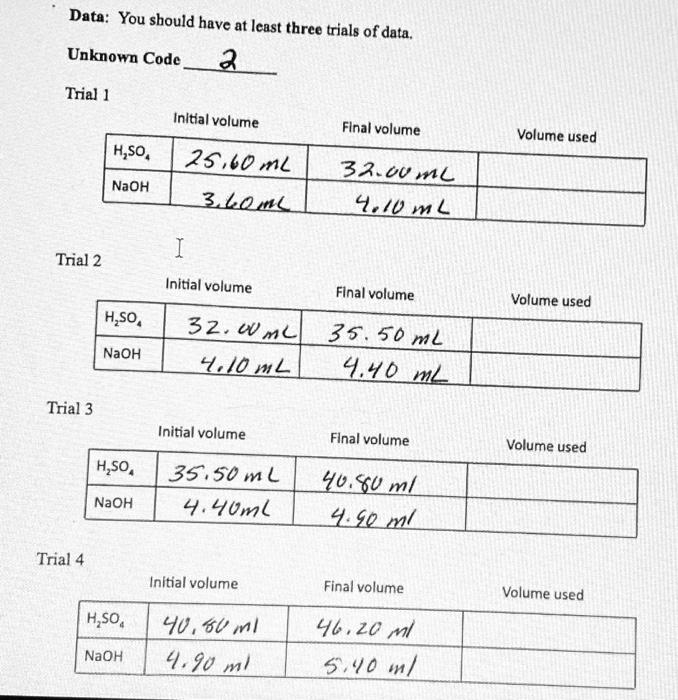 Data: You should have at least three trials of data.
Unknown Code 2
Trial 1
Initial volume Final volume Volume used
H₂SO₄ 25.60 mL 32.00 mL
NaOH 3.60 mL 4.10 mL
Trial 2
Initial volume Final volume Volume used
H₂SO₄ 32.00 mL 35.50 mL
NaOH 4.10 mL 4.40 mL
Trial 3
Initial volume Final volume Volume used
H₂SO₄ 35.50 mL 40.80 ml
NaOH 4.40 mL 4.90 ml
Trial 4
Initial volume Final volume Volume used
H₂SO₄ 40.80 ml 46.20 ml
NaOH 4.90 ml 5.40 ml